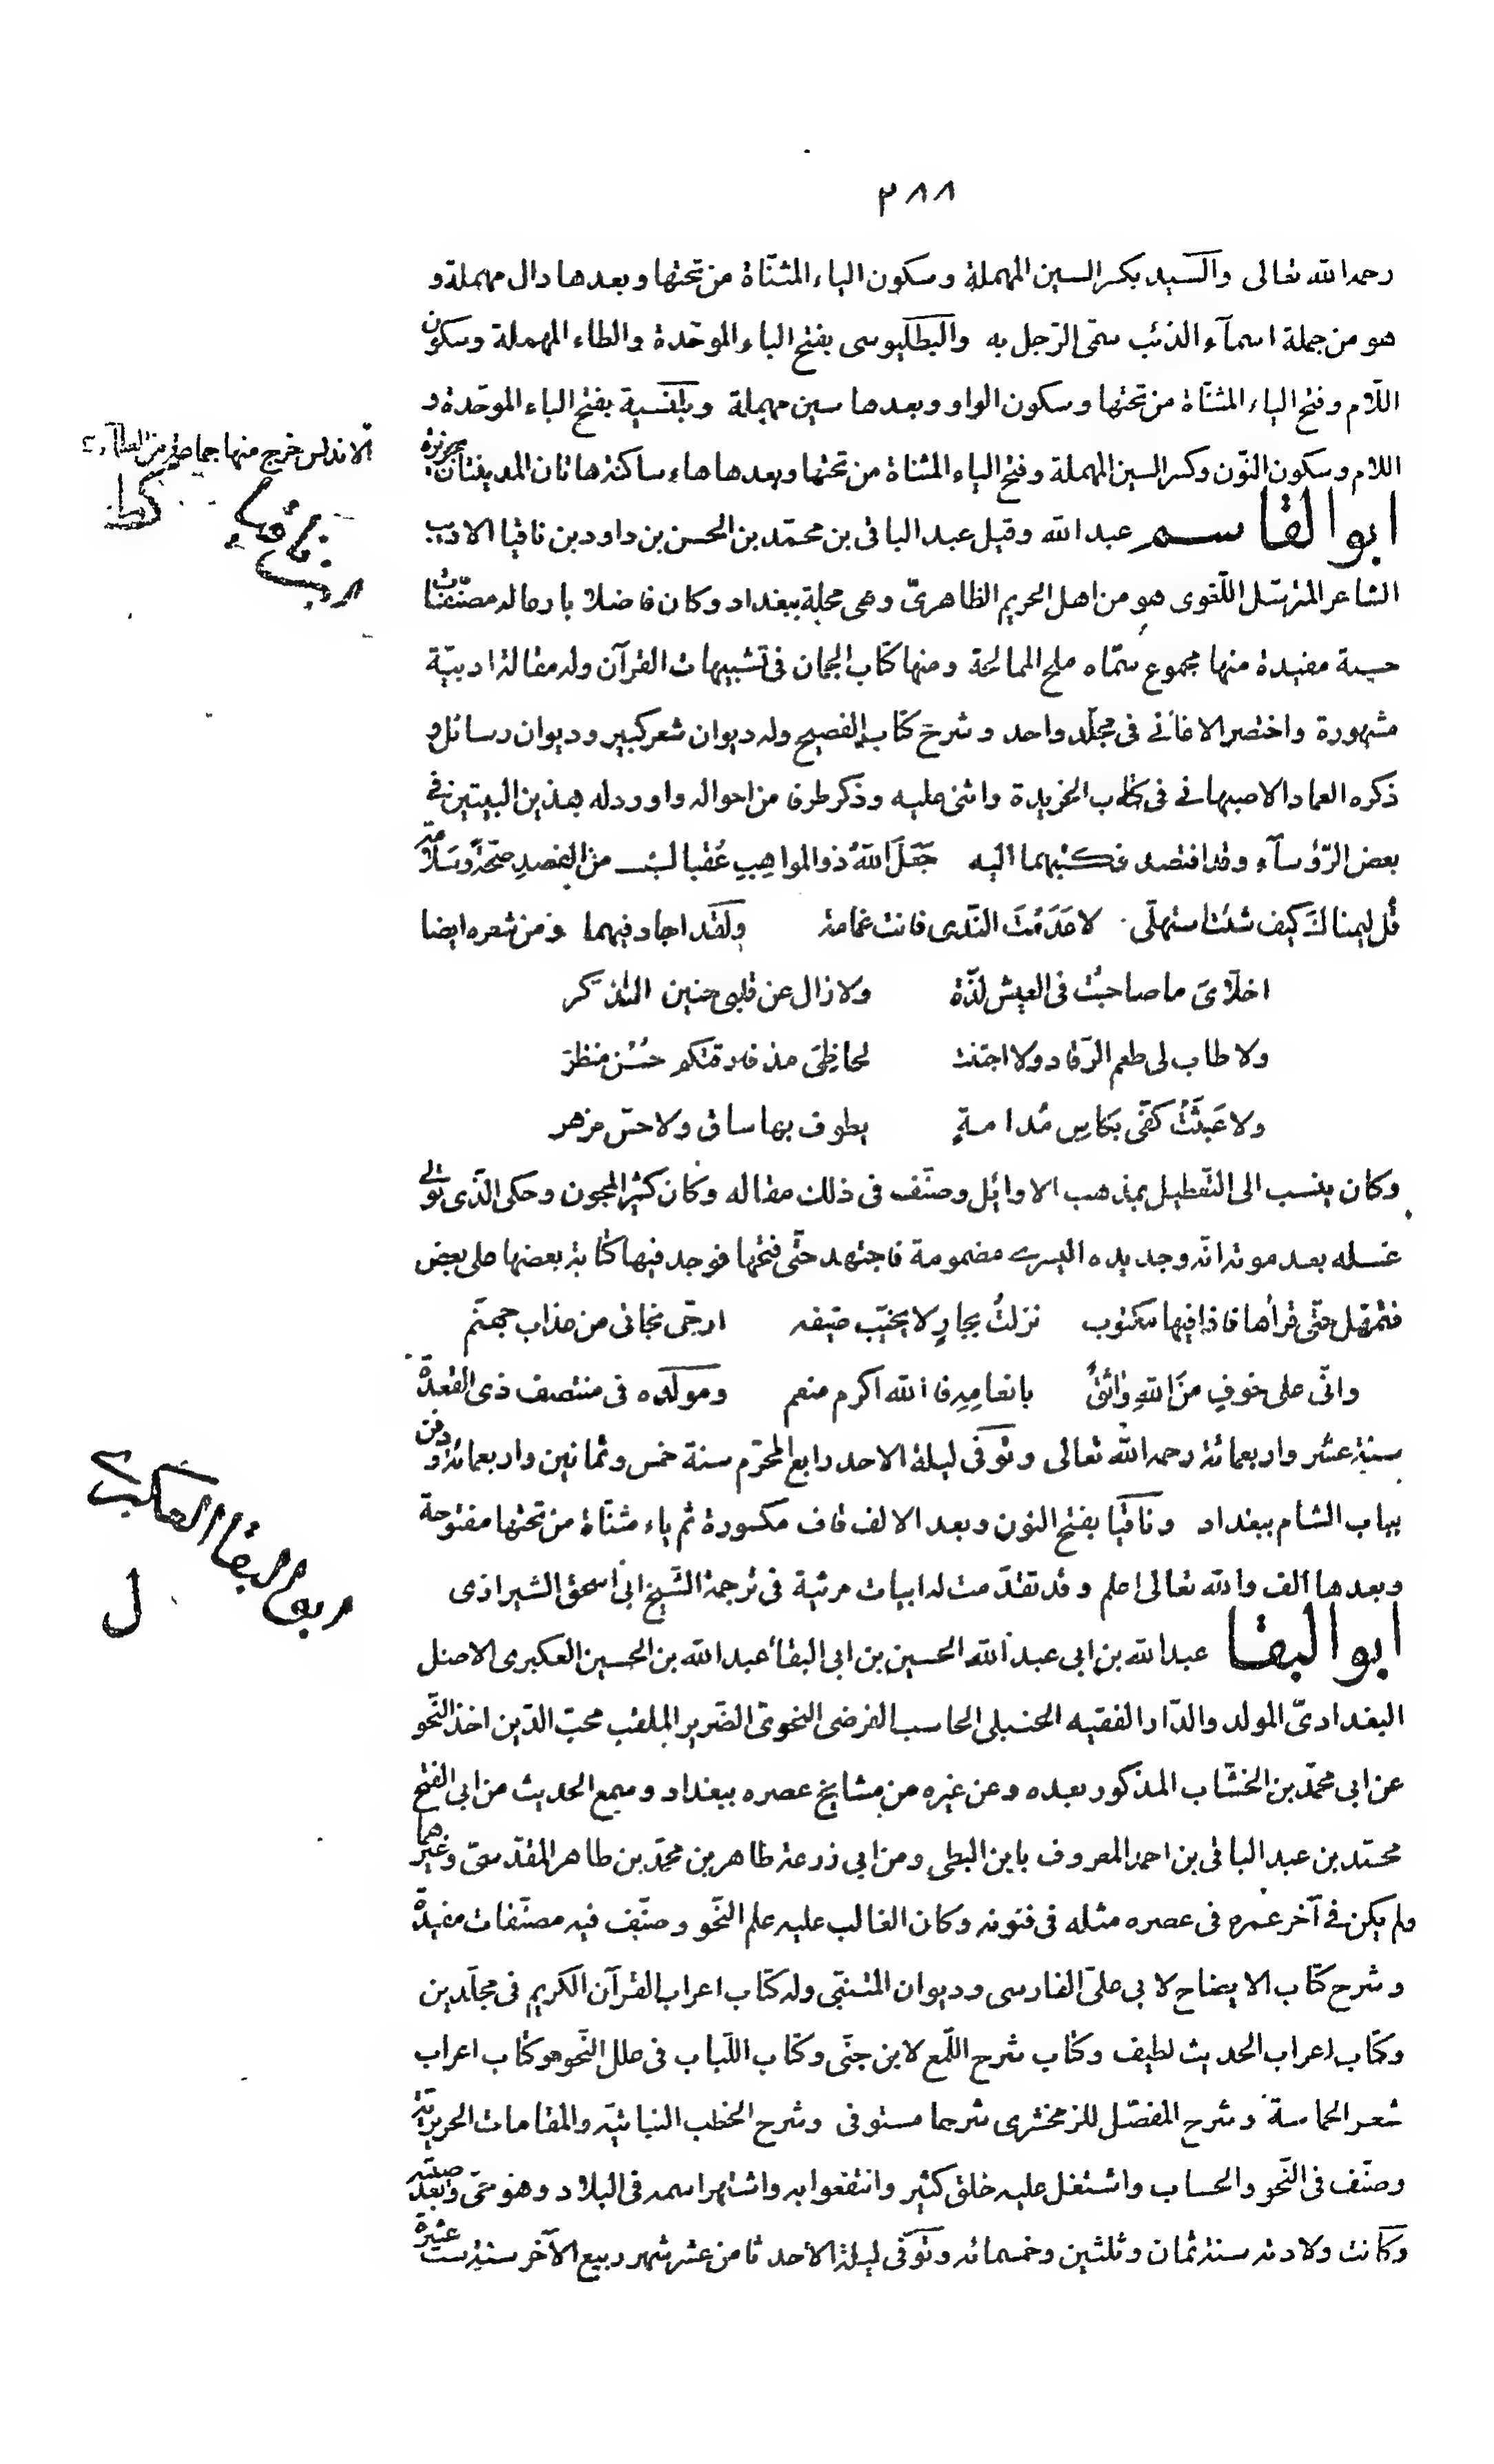 ٢٨٨
رحمه الله تعالى والسيد بكسر السين المهملة وسكون الياء المثنّاة من تحتها وبعدها دال مهملة و
هو من جملة اسمآء الذئب سمّى الرّجل به والبطليوسى بفتح الباء الموحّدة والطاء المهملة وسكون
اللّام وفتح الياء المثنّاة من تحتها وسكون الواو وبعدها سين مهملة وبلنسية بفتح الباء الموحّدة و
اللام وسكون النّون وكسر السين المهملة وفتح الياء المثناة من تحتها وبعدها هاء ساكنة هاتان المدينتان بجزيرة
الاندلس خرج منها جماعة من العلماء
ابو القاسم عبد الله وقيل عبد الباقى بن محمّد بن الحسن بن داود بن ناقيا الاديب
ابن ناقيا
الشاعر المترسّل اللّغوى هو من اهل الحريم الظاهرىّ وهى محلة ببغداد وكان فاضلا بارعا له مصنّفات
حسنة مفيدة منها مجموع سمّاه ملح الممالحة ومنها كتاب الجمان فى تشبيهات القرآن وله مقالة ادبيّة
مشهورة واختصر الاغانى فى مجلّد واحد وشرح كتاب الفصيح وله ديوان شعر كبير وديوان رسائل و
ذكره العماد الاصبهانى فى كتاب الخريدة واثنى عليه وذكر طرفا من احواله واورد له هذين البيتين فى
بعض الرّؤسآء وقد افتصد فكتبهما اليه جَعَلَ اللّهُ ذو المواهِبِ عُقباكَ من الفصدِ صحّةً وسَلامة
قُل ليمناكَ كيف شئت استهلّى لا عَدَمْتَ النّدى فانت غمامة ولقد اجاد فيهما ومن شعره ايضا
اخلّاىَ ما صاحبْتُ فى العيش لذّة ولا زال عن قلبى حنين التذكّر
ولا طاب لى طعم الرّقاد ولا اجتنت لحاظِىَ مذ فارقتكم حُسْن منظر
ولا عَبِثَتْ كفّى بكاسِ مُدامةٍ يطوف بها ساق ولا حسّ مزهر
وكان ينسب الى التّعطيل بمذهب الاوايل وصنّف فى ذلك مقاله وكان كثير المجون وحكى الّذى تولى
غسله بعد موته انّه وجد يده اليسرى مضمومة فاجتهد حتّى فتحها فوجد فيها كتابة بعضها على بعض
فتمهّل حتّى قرأها فاذا فيها مكتوب نزلتُ بجارٍ لا يخيّب ضيفه ارجّى نجاتى من عذاب جهنّم
وانّى على خوفٍ منَ اللهِ واثقٌ بانعامِهِ فالله اكرم منعم ومولده فى منتصف ذى القعدة
سنة عشر واربعمائة رحمه الله تعالى وتوفّى ليلة الاحد رابع المحرّم سنة خمس وثمانين واربعمائة ودفن
بباب الشام ببغداد وناقيا بفتح النون وبعد الالف قاف مكسورة ثم ياء مثنّاة من تحتها مفتوحة
وبعدها الف والله تعالى اعلم وقد تقدّمت له ابيات مرثية فى ترجمة الشّيخ ابى اسحق الشيرازى
ابو البقا عبد الله بن ابى عبد الله الحسين بن ابى البقاء عبد الله بن الحسين العكبرى الاصل
ابو البقا العكبرى
البغدادىّ المولد والدّار الفقيه الحنبلى الحاسب الفرضى النحوىّ الضّرير الملقب محبّ الدّين اخذ النّحو
عن ابى محمّد بن الخشّاب المذكور بعده وعن غيره من مشايخ عصره ببغداد وسمع الحديث من ابى الفتح
محمّد بن عبد الباقى بن احمد المعروف بابن البطى ومن ابى زرعة طاهر بن محمّد بن طاهر المقدّسىّ وغيرهما
ولم يكن فى آخر عمره فى عصره مثله فى فنونه وكان الغالب عليه علم النّحو وصنّف فيه مصنّفات مفيدة
وشرح كتاب الايضاح لابى علىّ الفارسى وديوان المتنبّى وله كتاب اعراب القرآن الكريم فى مجلّدين
وكتاب اعراب الحديث لطيف وكتاب شرح اللّمع لابن جنّى وكتاب اللّباب فى علل النّحو وكتاب اعراب
شعر الحماسة وشرح المفصّل للزمخشرى شرحا مستوفى وشرح الخطب النباتيّة والمقامات الحريريّة
وصنّف فى النّحو والحساب واشتغل عليه خلق كثير وانتفعوا به واشتهر اسمه فى البلاد وهو حىّ وبعد صيته
وكانت ولادته سنة ثمان وثلثين وخمسمائه وتوفّى ليلة الاحد ثامن عشر شهر ربيع الآخر سنة ست عشرة